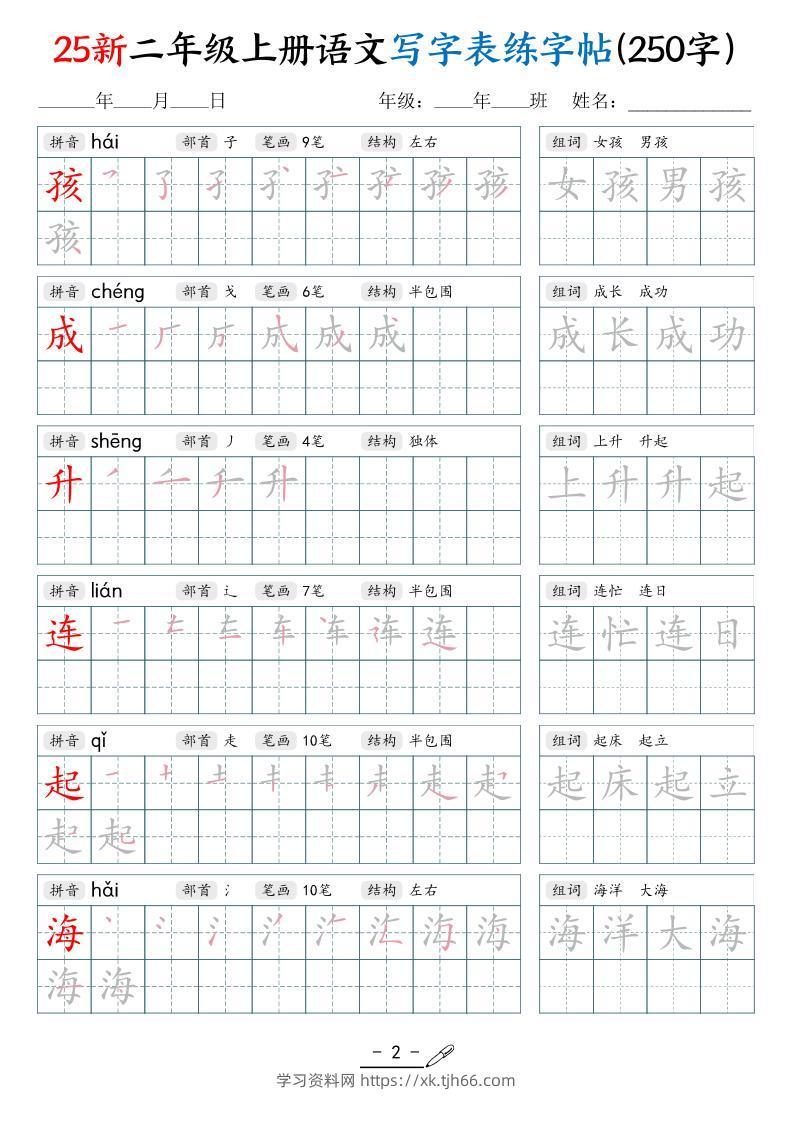 25新二年级上册语文写字表练字帖(250字)
______年____月____日 年级：____年____班 姓名：____________
拼音 hái 部首 子 笔画 9笔 结构 左右 组词 女孩 男孩
孩 女孩男孩
孩
拼音 chéng 部首 戈 笔画 6笔 结构 半包围 组词 成长 成功
成 成长成功
拼音 shēng 部首 丿 笔画 4笔 结构 独体 组词 上升 升起
升 上升升起
拼音 lián 部首 辶 笔画 7笔 结构 半包围 组词 连忙 连日
连 连忙连日
拼音 qǐ 部首 走 笔画 10笔 结构 半包围 组词 起床 起立
起 起床起立
起 起
拼音 hǎi 部首 氵 笔画 10笔 结构 左右 组词 海洋 大海
海 海洋大海
海 海
- 2 -
学习资料网 https://xk.tjh66.com